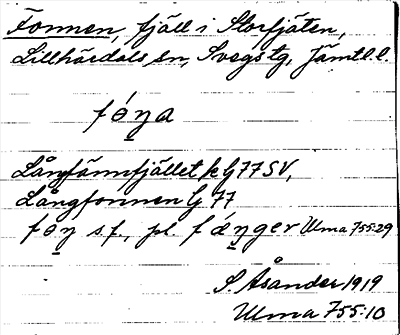 Fonnen, fjäll i Storfjäten,
Lillhärdals sn, Svegs tg, Jämtl. l.
fǿŋa
Långfännfjället k G77SV,
Långfonnen G 77
føŋ s.f., pl. fǽŋger Ulma 755:29
S Åsander 1919
Ulma 755:10